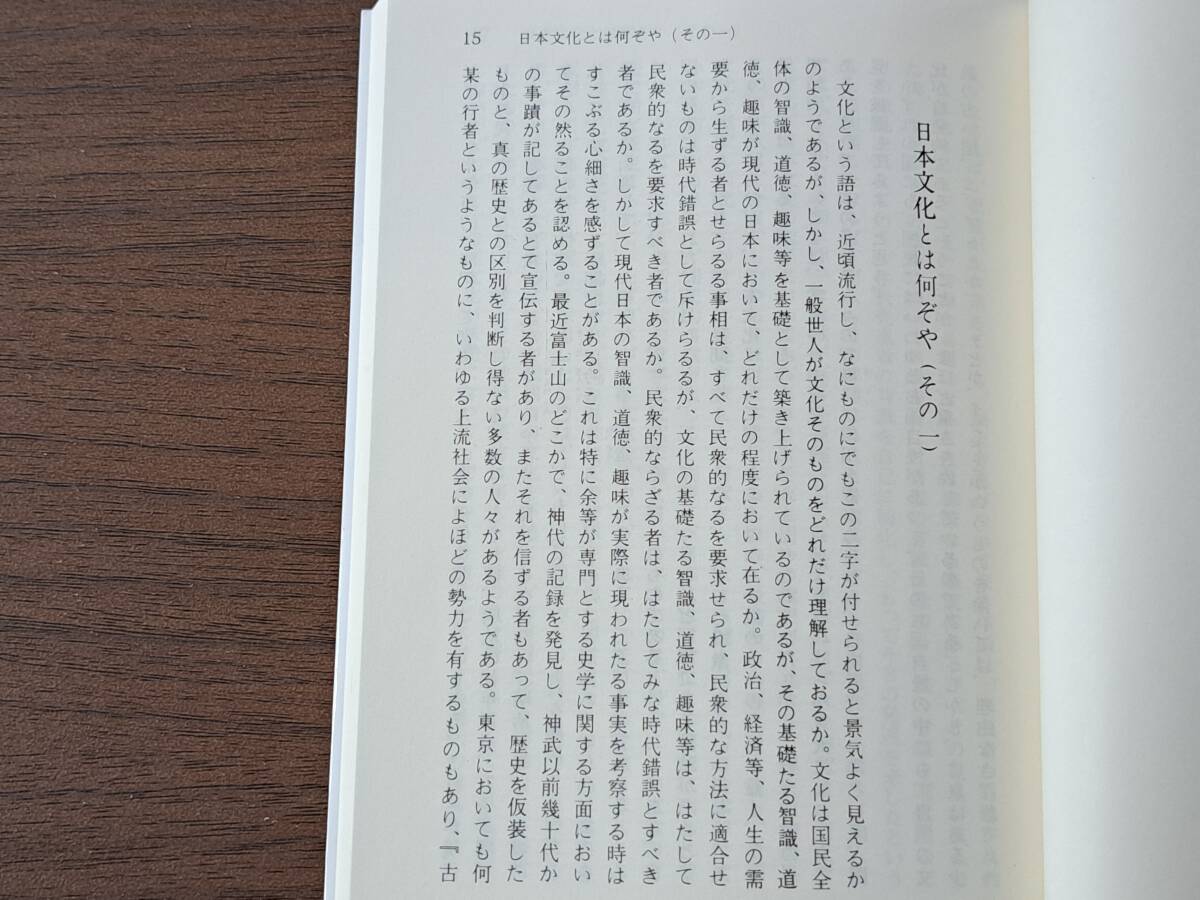 15　日本文化とは何ぞや（その一）
日本文化とは何ぞや（その一）
文化という語は、近頃流行し、なにものにでもこの二字が付せられると景気よく見えるか
のようであるが、しかし、一般世人が文化そのものをどれだけ理解しておるか。文化は国民全
体の智識、道徳、趣味等を基礎として築き上げられているのであるが、その基礎たる智識、道
徳、趣味が現代の日本において、どれだけの程度において在るか。政治、経済等、人生の需
要から生ずる者とせらるる事相は、すべて民衆的なるを要求せられ、民衆的な方法に適合せ
ないものは時代錯誤として斥けらるるが、文化の基礎たる智識、道徳、趣味等は、はたして
民衆的なるを要求すべき者であるか。民衆的ならざる者は、はたしてみな時代錯誤とすべき
者であるか。しかして現代日本の智識、道徳、趣味が実際に現われたる事実を考察する時は
すこぶる心細さを感ずることがある。これは特に余等が専門とする史学に関する方面におい
てその然ることを認める。最近富士山のどこかで、神代の記録を発見し、神武以前幾十代か
の事蹟が記してあるとて宣伝する者があり、またそれを信ずる者もあって、歴史を仮装した
ものと、真の歴史との区別を判断し得ない多数の人々があるようである。東京においても何
某の行者というようなものに、いわゆる上流社会によほどの勢力を有するものもあり、『古